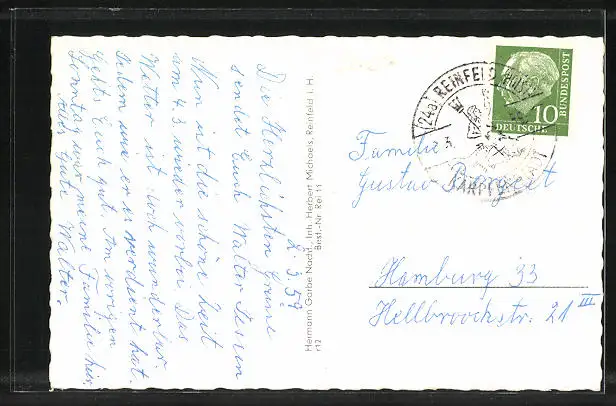 2. 3. 59
Die herzlichsten Grüsse
sendet Euch Walter
Nun ist die schöne Zeit
am 4.3 wieder vorbei Das
Wetter ist auch wunderbar
Gehts Euch gut. Am vorigen
Sonntag war meine Familie hier
Alles Gute Walter.
Hermann Garbe Nachf., Inh. Herbert Michaels, Reinfeld i. H.
r12 Best.-Nr Rei 11
(24a) REINFELD (HOLST)
DEUTSCHE
BUNDESPOST
10
Familie
Gustav
Hamburg 33
Hellbroockstr. 21 III